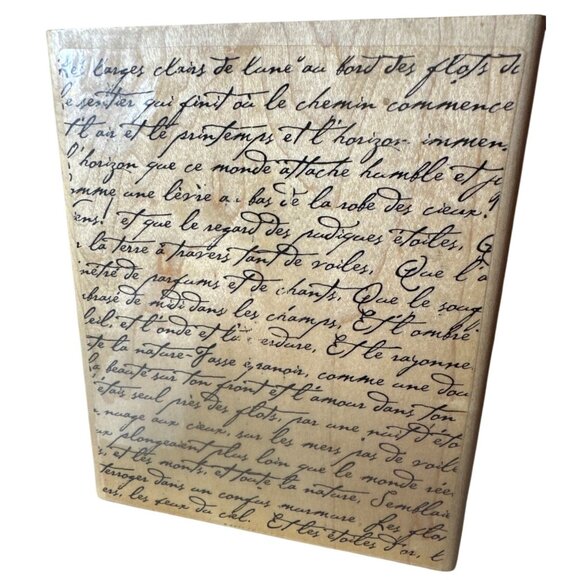 Les larges clairs de lune" au bord des flots d
le sentier qui finit où le chemin commence
t l'air et le printemps et l'horizon immen
l'horizon que ce monde attache humble et j
omme une lèvre a bas de la robe des cieux!
iens! et que le regard des pudiques étoiles,
la terre à travers tant de voiles, Que l'a
nétré de parfums et de chants, Que le souf
brasé de midi dans les champs, Et l'ombre
leil, et l'onde et la erdure, Et le rayonne
te la nature-Fasse épanoir, comme une dou
la beauté sur ton front et l'amour dans ton
étais seul près des flots, par une nuit d'éto
nuage aux cieux, sur les mers pas de voile
ux plongeaient plus loin que le monde rée
s, et les monts, et toute la nature, Semblaie
terroger dans un confus murmure, Les flo
ers, les feux du ciel. Et les étoiles d'or, l